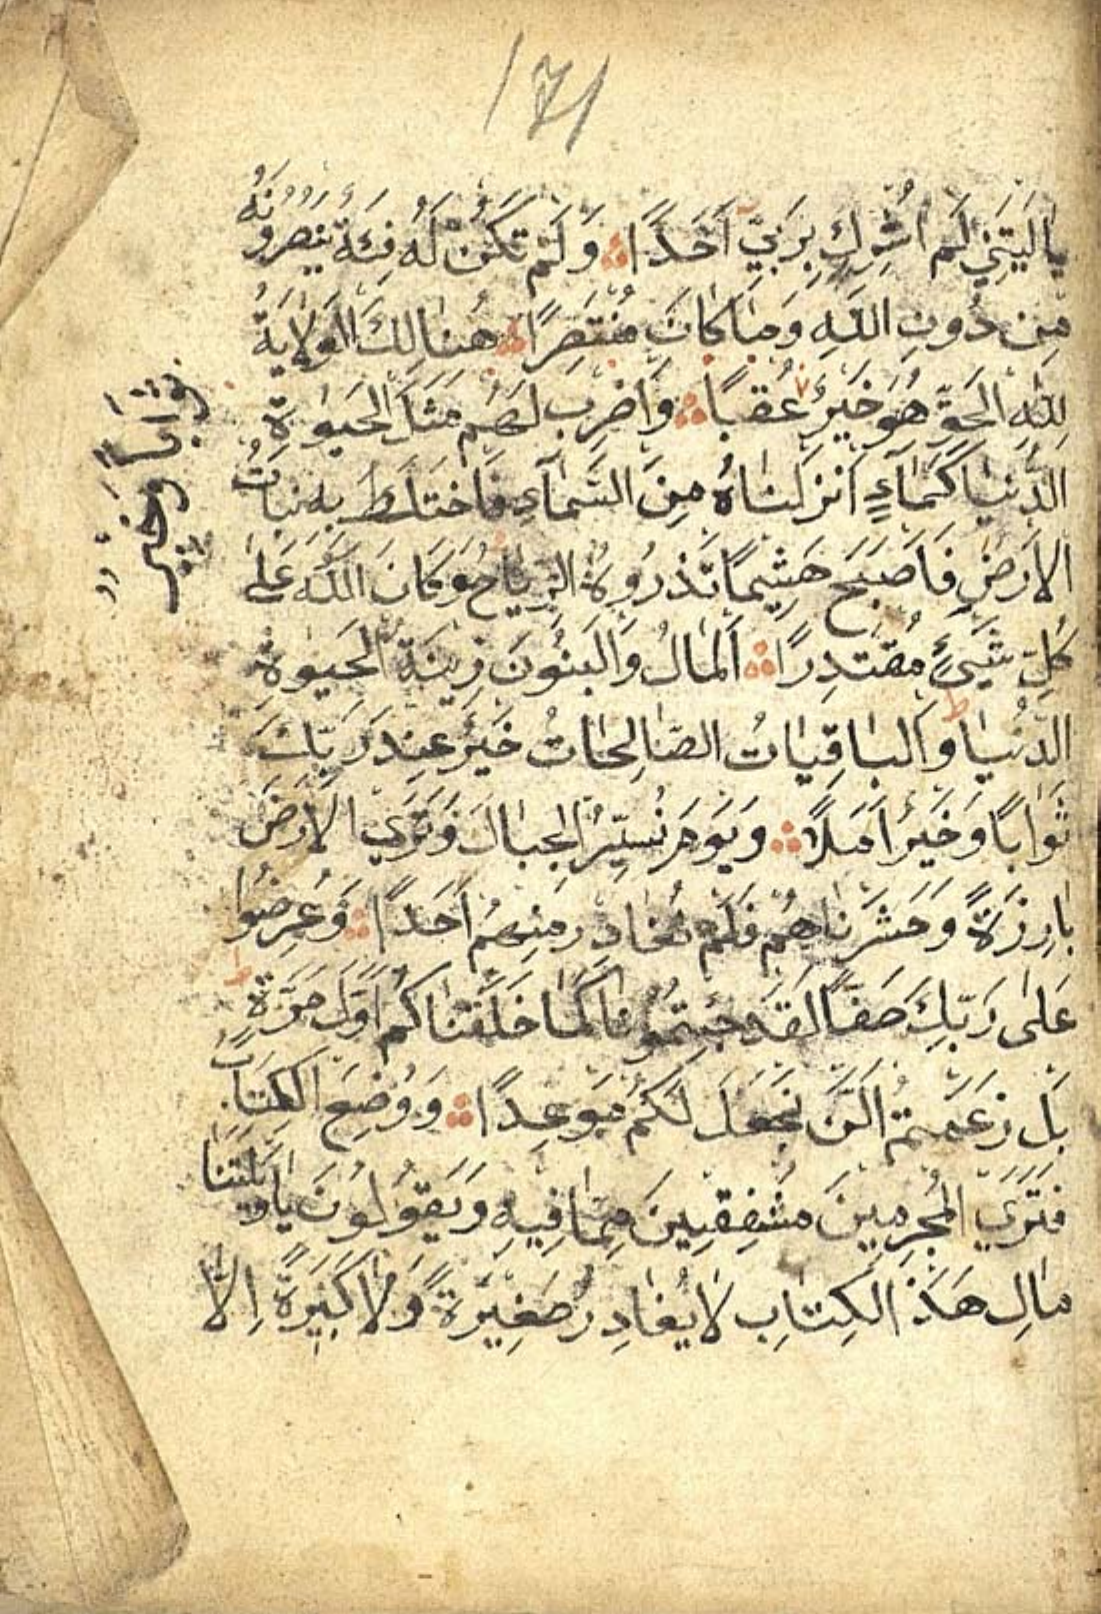 171
يَا لَيْتَنِي لَمْ أُشْرِكْ بِرَبِّي أَحَدًا وَلَمْ تَكُنْ لَهُ فِئَةٌ يَنْصُرُونَهُ
مِنْ دُونِ اللهِ وَمَا كَانَ مُنْتَصِرًا هُنَالِكَ الْوَلَايَةُ
لِلّٰهِ الْحَقِّ هُوَ خَيْرٌ عُقْبًا وَاضْرِبْ لَهُمْ مَثَلَ الْحَيٰوةِ
الدُّنْيَا كَمَآءٍ أَنْزَلْنَاهُ مِنَ السَّمَآءِ فَاخْتَلَطَ بِهِ نَبَاتُ
الْأَرْضِ فَأَصْبَحَ هَشِيمًا تَذْرُوهُ الرِّيَاحُ وَكَانَ اللهُ عَلَى
كُلِّ شَيْءٍ مُقْتَدِرًا اَلْمَالُ وَالْبَنُونَ زِينَةُ الْحَيٰوةِ
الدُّنْيَا وَالْبَاقِيَاتُ الصَّالِحَاتُ خَيْرٌ عِنْدَ رَبِّكَ
ثَوَابًا وَخَيْرٌ أَمَلًا وَيَوْمَ نُسَيِّرُ الْجِبَالَ وَتَرَى الْأَرْضَ
بَارِزَةً وَحَشَرْنَاهُمْ فَلَمْ نُغَادِرْ مِنْهُمْ أَحَدًا وَعُرِضُوا
عَلٰى رَبِّكَ صَفًّا لَقَدْ جِئْتُمُونَا كَمَا خَلَقْنَاكُمْ أَوَّلَ مَرَّةٍ
بَلْ زَعَمْتُمْ أَلَّنْ نَجْعَلَ لَكُمْ مَوْعِدًا وَوُضِعَ الْكِتَابُ
فَتَرَى الْمُجْرِمِينَ مُشْفِقِينَ مِمَّا فِيهِ وَيَقُولُونَ يَاوَيْلَتَنَا
مَالِ هَذَا الْكِتَابِ لَا يُغَادِرُ صَغِيرَةً وَلَا كَبِيرَةً إِلَّا